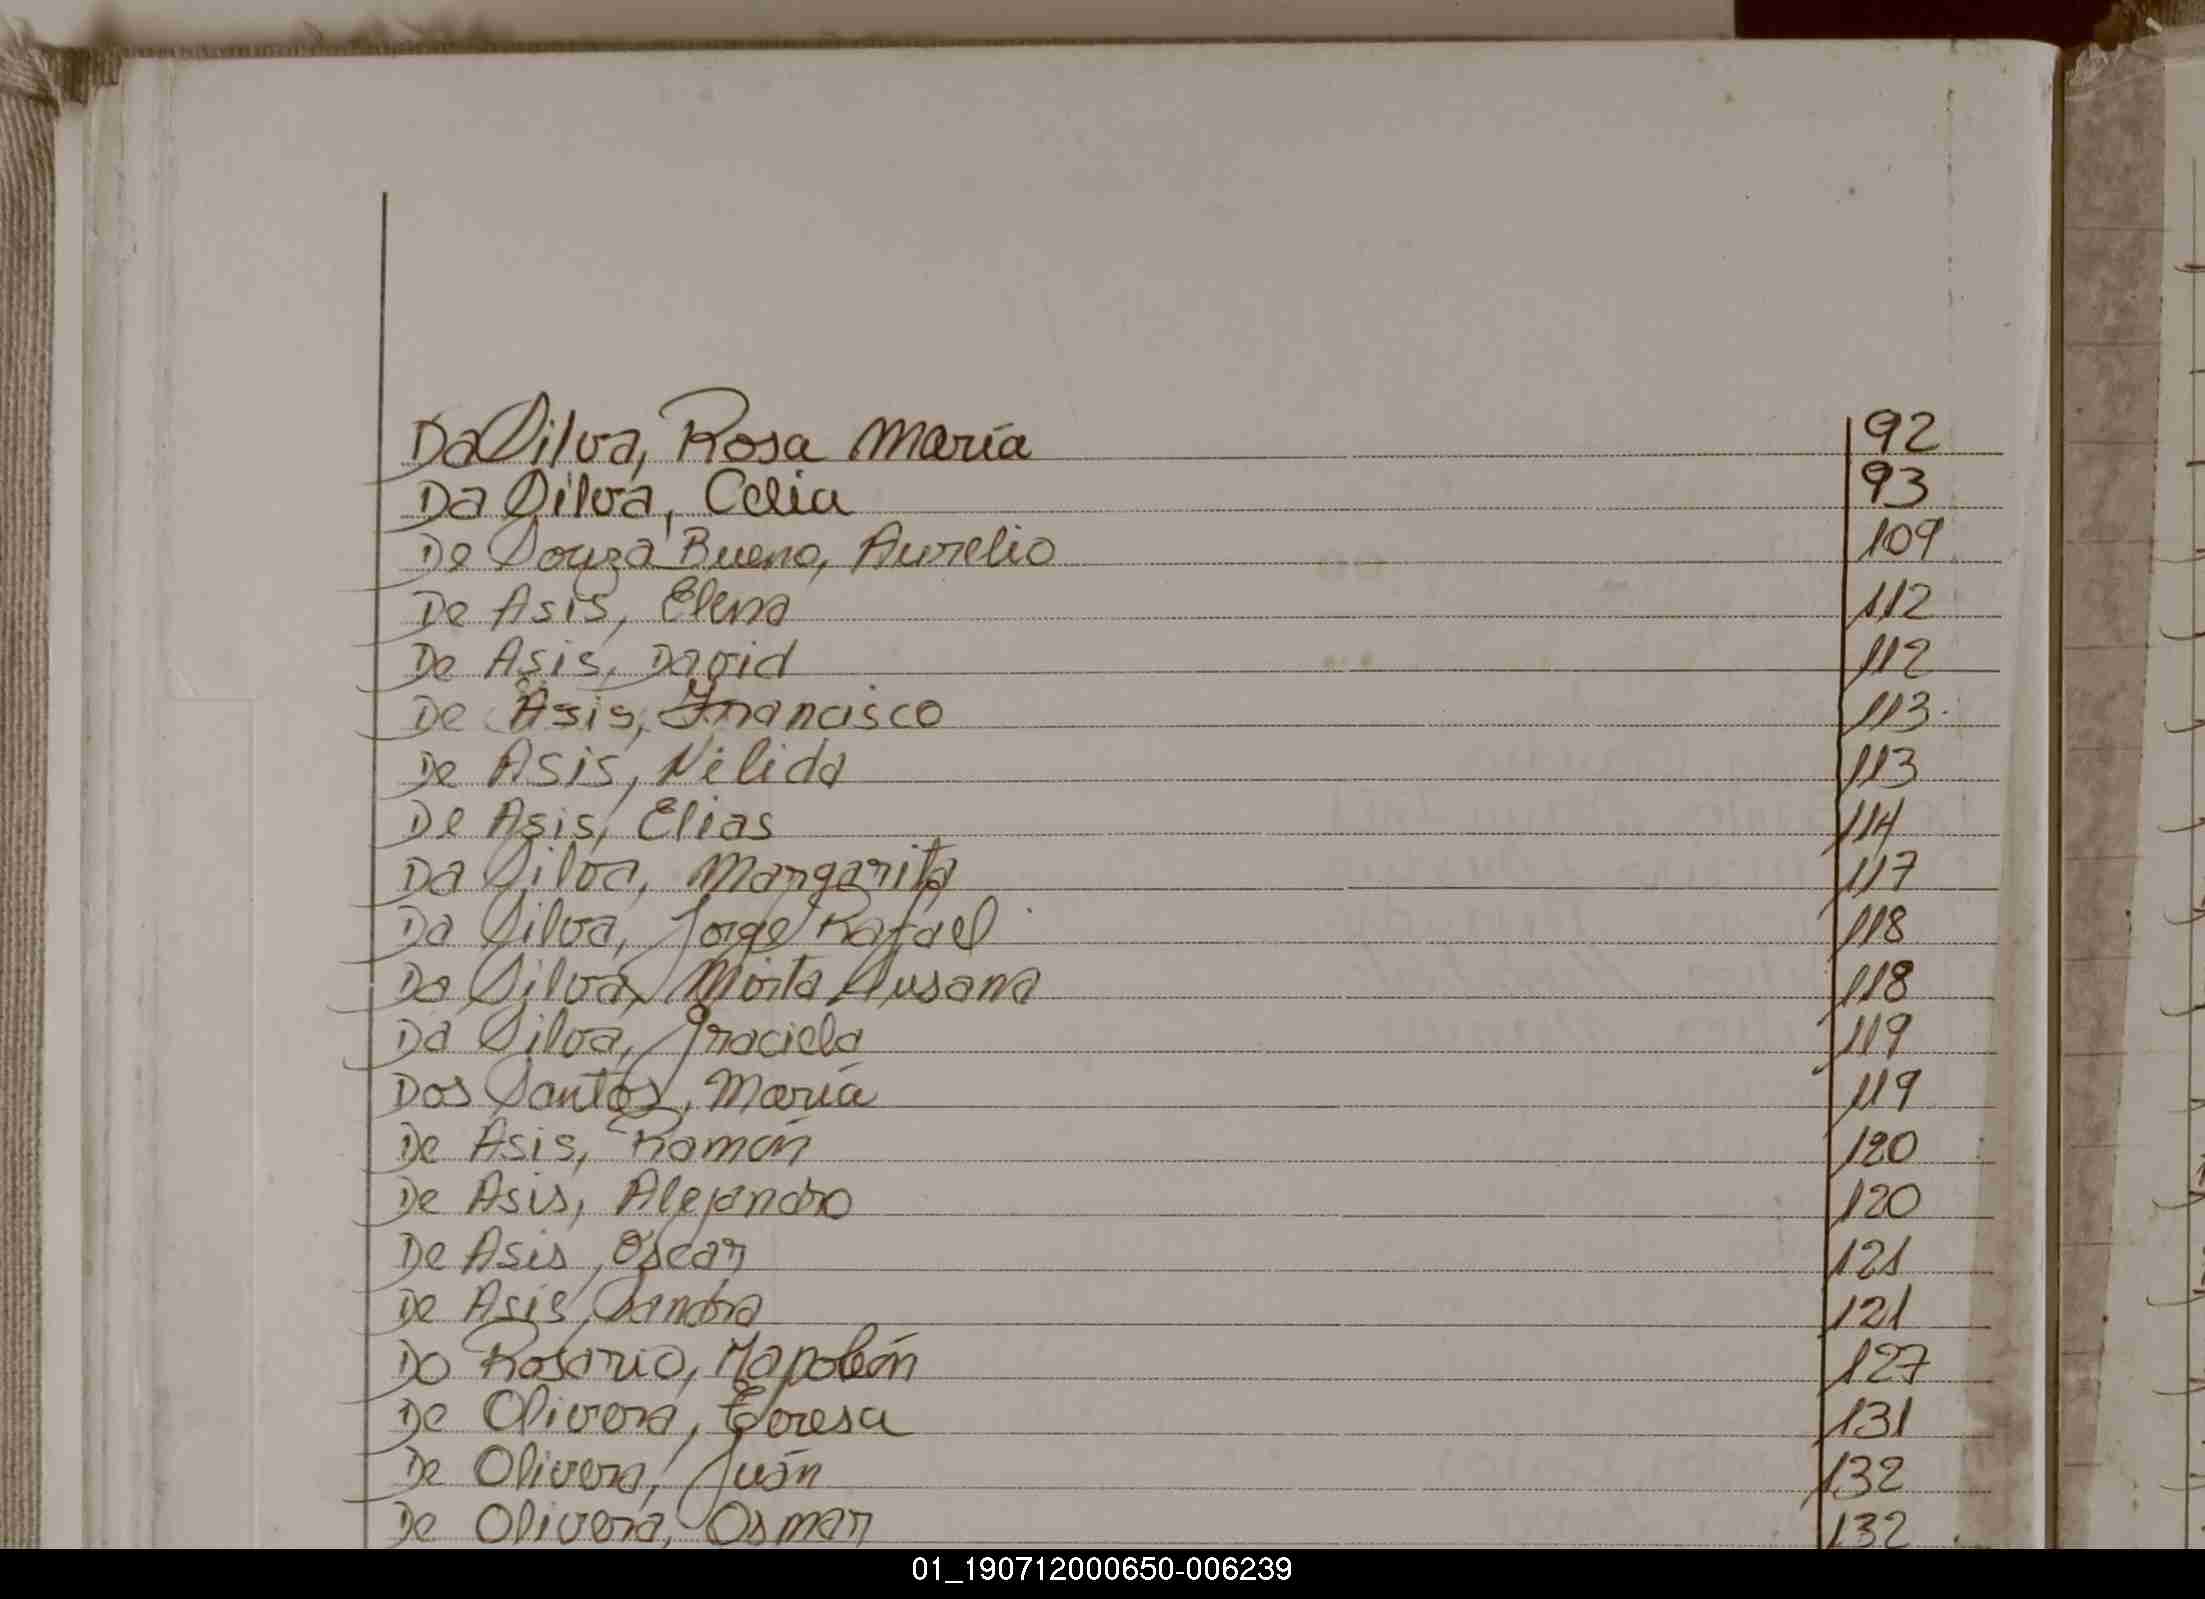 Da Silva, Rosa María 92
Da Silva, Celia 93
De Souza Bueno, Aurelio 109
De Asis, Elena 112
De Asis, David 112
De Asis, Francisco 113
De Asis, Nélida 113
De Asis, Elias 114
Da Silva, Margarita 117
Da Silva, Jorge Rafael 118
Da Silva, Mirta Susana 118
Da Silva, Graciela 119
Dos Santos, María 119
De Asis, Ramón 120
De Asis, Alejandro 120
De Asis, Oscar 121
De Asis, Sandra 121
Do Rosario, Napoleón 127
De Olivera, Teresa 131
De Olivera, Juán 132
De Olivera, Osmar 132
01_190712000650-006239